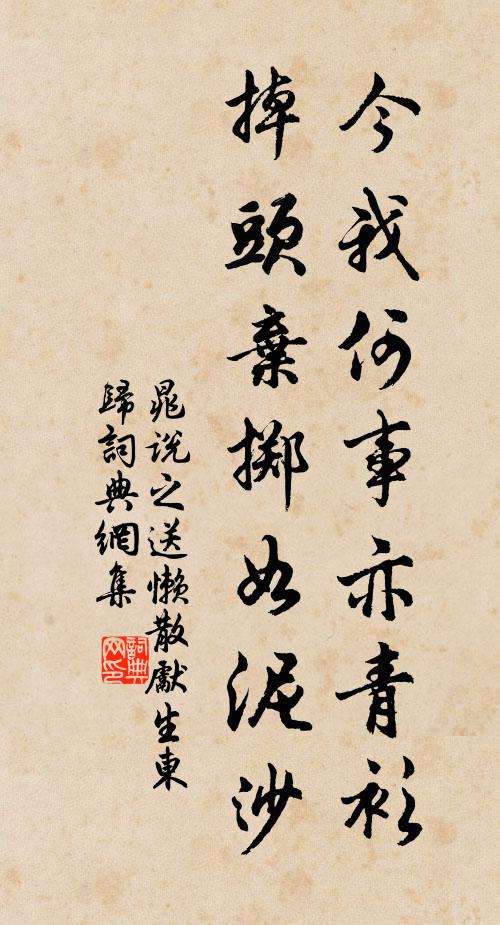 今我何事亦青衫
掉頭棄擲如泥沙
晁说之送懒散獻生東
歸詞典網集
詞典
网印